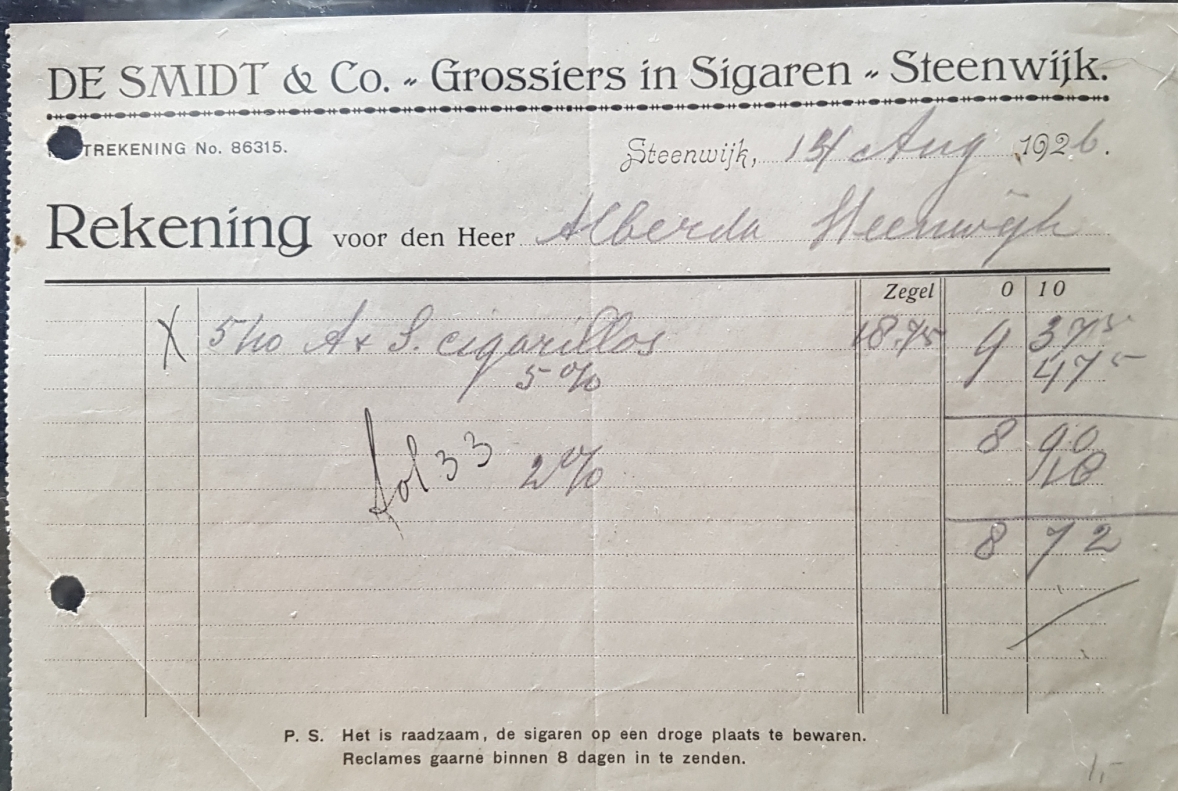 DE SMIDT & Co. „ Grossiers in Sigaren „ Steenwijk.
TREKENING No. 86315.
Steenwijk, 14 Aug 1926.
Rekening voor den Heer Alberda Steenwijk
Zegel 0 10
X 5/10 A & S. cigarillos 18.75 9 375
5% 475
8 90
fol 33 2% 18
8 72
P. S. Het is raadzaam, de sigaren op een droge plaats te bewaren.
Reclames gaarne binnen 8 dagen in te zenden.
1,-